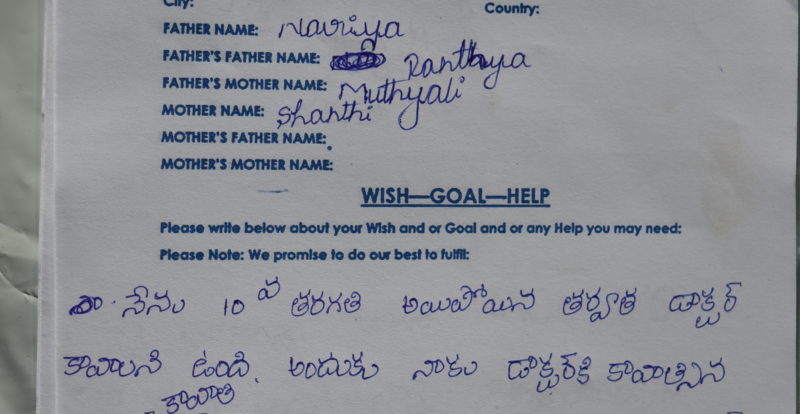 City:
Country:
FATHER NAME: Navriya
FATHER'S FATHER NAME: Ranthiya
FATHER'S MOTHER NAME: Muthyali
MOTHER NAME: Shanthi
MOTHER'S FATHER NAME:
MOTHER'S MOTHER NAME:
WISH—GOAL—HELP
Please write below about your Wish and or Goal and or any Help you may need:
Please Note: We promise to do our best to fulfil:
నేను 10 వ తరగతి అయిపోయిన తర్వాత డాక్టర్
కావాలని ఉంది. అందుకు నాకు డాక్టర్‌కి కావాల్సిన